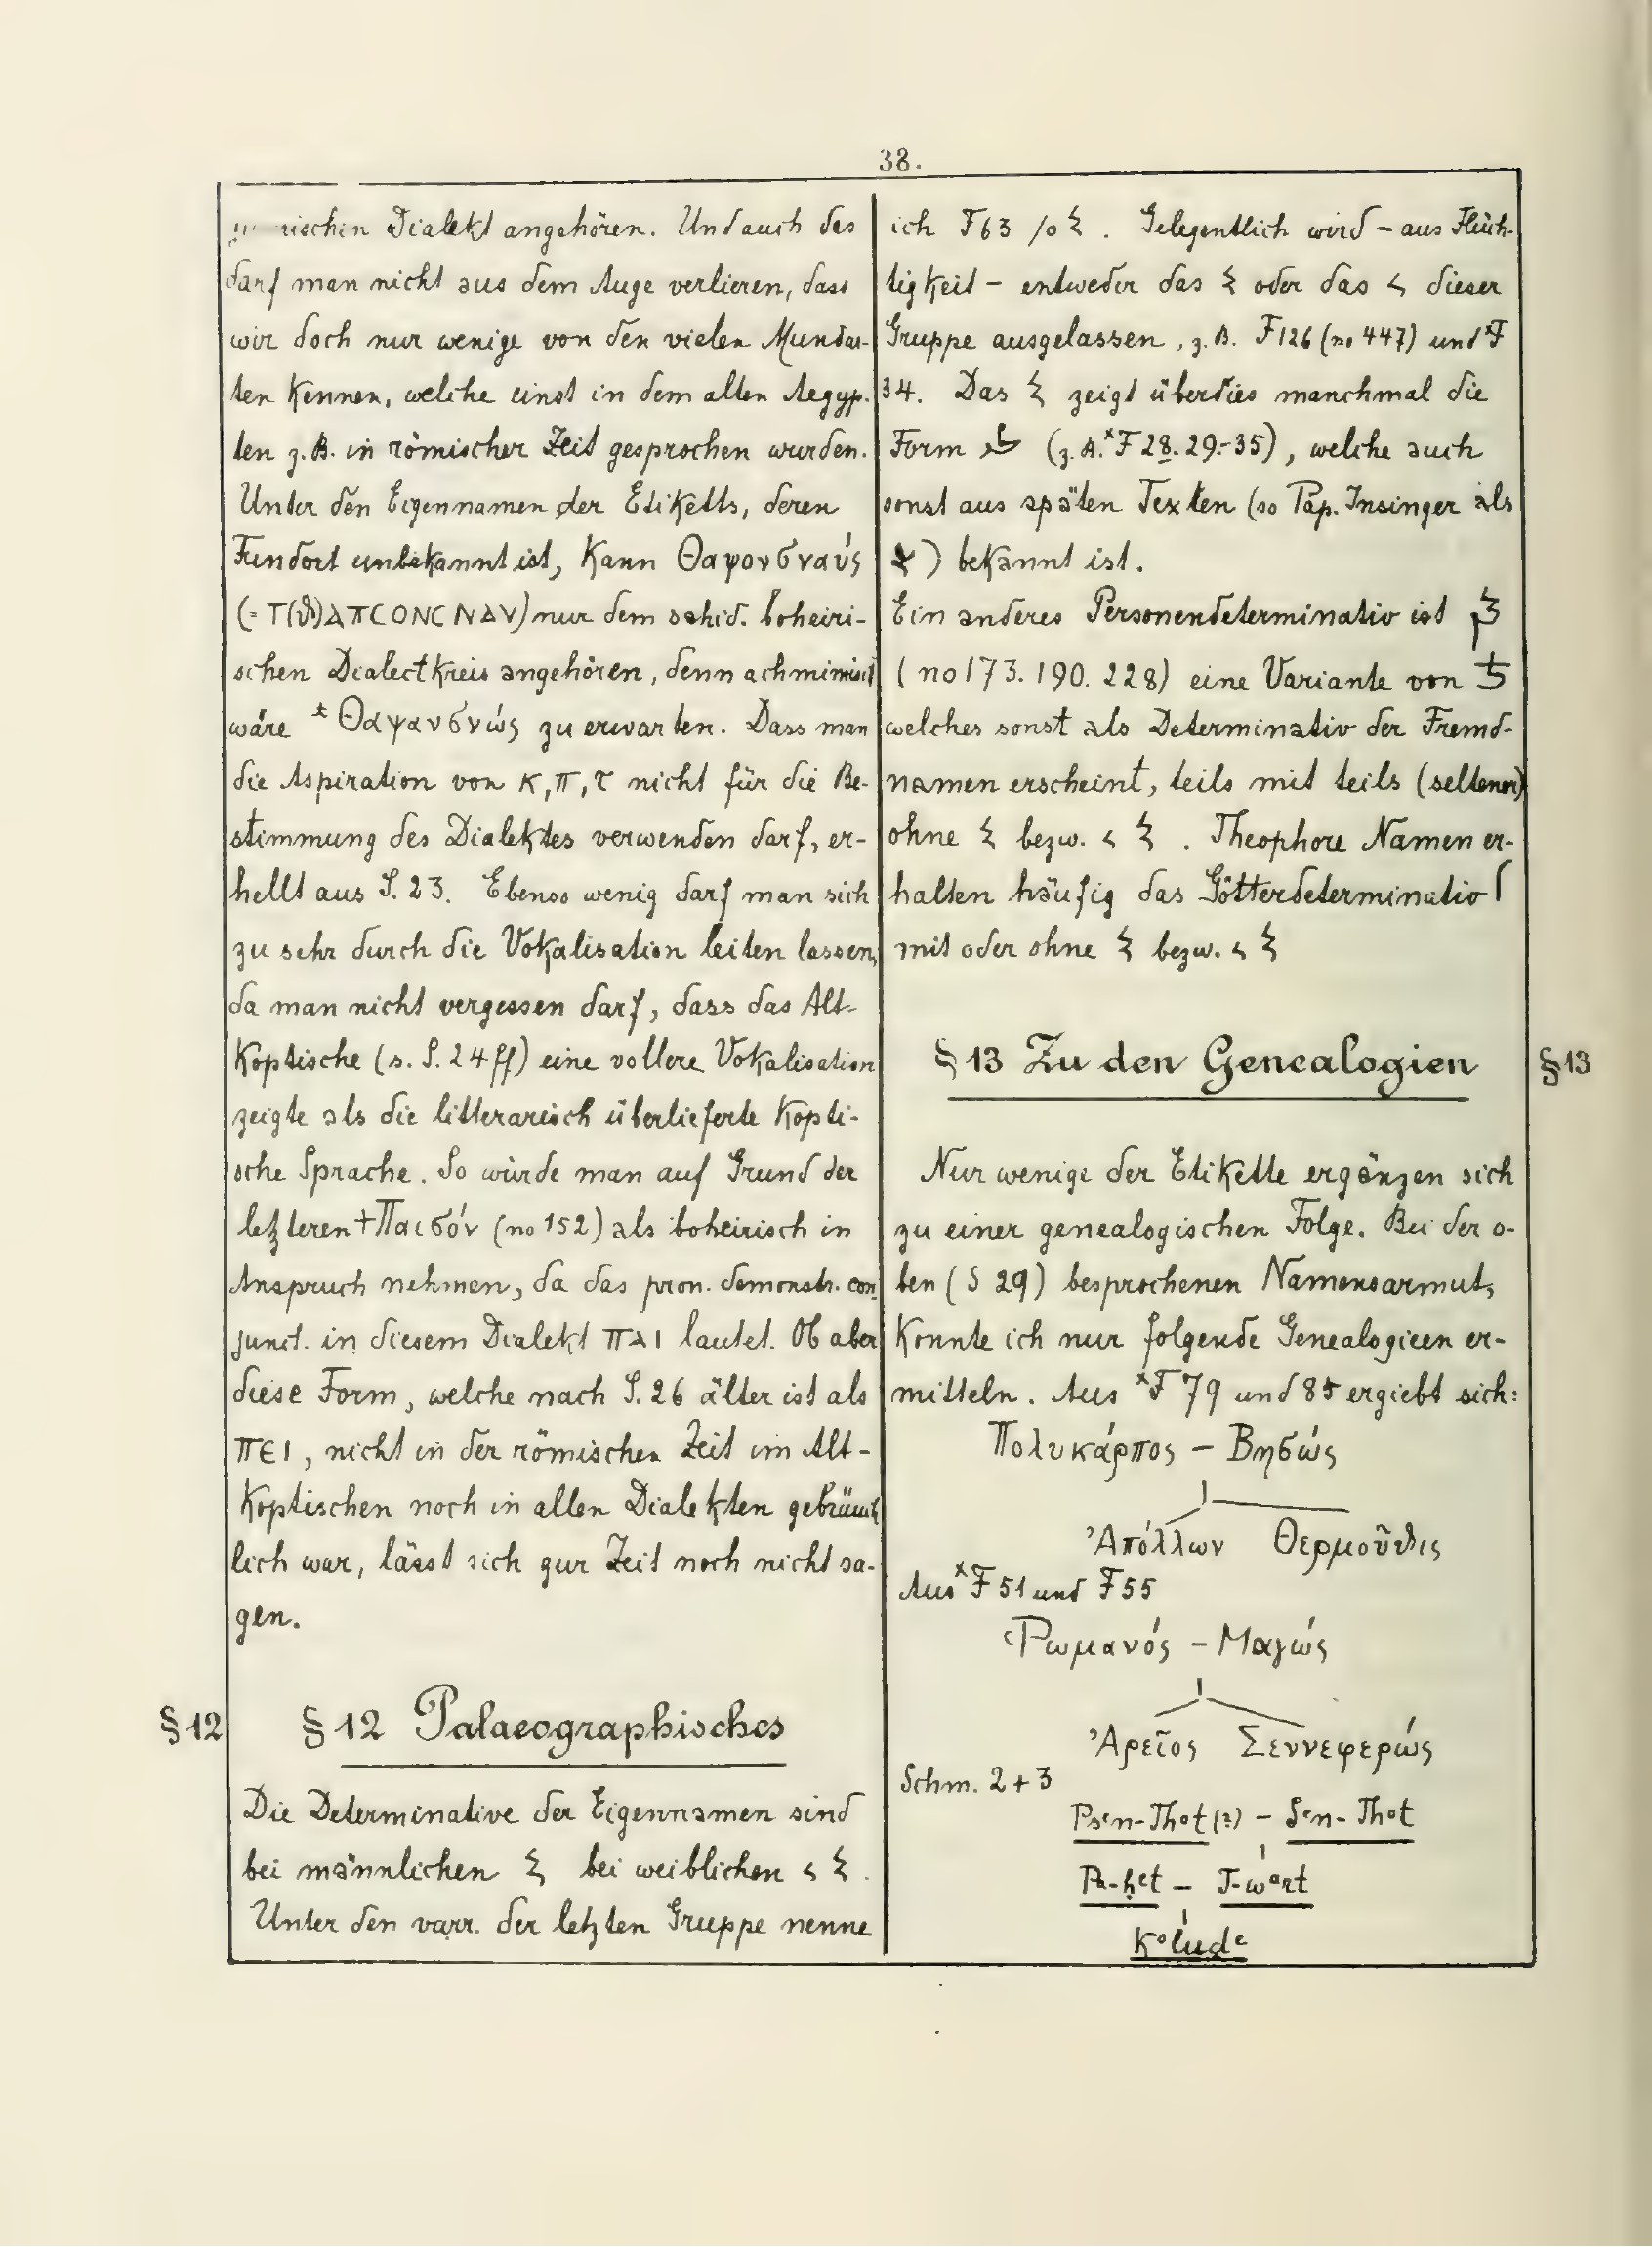 38.
ischen Dialekt angehören. Und auch das
darf man nicht aus dem Auge verlieren, dass
wir doch nur wenige von den vielen Mundar-
ten kennen, welche einst in dem alten Aegyp-
ten z.B. in römischer Zeit gesprochen wurden.
Unter den Eigennamen der Etiketts, deren
Fundort unbekannt ist, kann Θαψονσναύς
(= T(ϑ)ΑΠCONCNAV) nur dem sahid. boheiri-
schen Dialectkreis angehören, denn achmimisch
wäre * Θαψανσνώς zu erwarten. Dass man
die Aspiration von κ, π, τ nicht für die Be-
stimmung des Dialektes verwenden darf, er-
hellt aus S. 23. Ebenso wenig darf man sich
zu sehr durch die Vokalisation leiten lassen,
da man nicht vergessen darf, dass das Alt-
koptische (s. S. 24 ff) eine vollere Vokalisation
zeigte als die litterarisch überlieferte kopti-
sche Sprache. So würde man auf Grund der
letzteren + Παισόν (no 152) als boheirisch in
Anspruch nehmen, da das pron. demonstr. con-
junct. in diesem Dialekt ΠΑΙ lautet. Ob aber
diese Form, welche nach S. 26 älter ist als
ΠΕΙ, nicht in der römischen Zeit im Alt-
koptischen noch in allen Dialekten gebräuch-
lich war, lässt sich zur Zeit noch nicht sa-
gen.
§ 12
§ 12 Palaeographisches
Die Determinative der Eigennamen sind
bei männlichen bei weiblichen .
Unter den varr. der letzten Gruppe nenne
ich F 63 . Gelegentlich wird – aus Flüch-
tigkeit – entweder das oder das dieser
Gruppe ausgelassen, z.B. F 126 (no 447) und *F
34. Das zeigt überdies manchmal die
Form (z.B. *F 28. 29.-35), welche auch
sonst aus späten Texten (so Pap. Insinger als
) bekannt ist.
Ein anderes Personendeterminativ ist
(no 173. 190. 228) eine Variante von
welches sonst als Determinativ der Fremd-
namen erscheint, teils mit teils (seltener)
ohne bezw. . Theophore Namen er-
halten häufig das Götterdeterminativ
mit oder ohne bezw.
§ 13 Zu den Genealogien
§ 13
Nur wenige der Etikette ergänzen sich
zu einer genealogischen Folge. Bei der o-
ben (S 29) besprochenen Namensarmut,
konnte ich nur folgende Genealogieen er-
mitteln. Aus *F 79 und 85 ergiebt sich:
Πολυκάρπος – Βησώς
Ἀπόλλων Θερμοῦϑις
Aus *F 51 und F 55
Ῥωμανός – Μαγώς
Ἀρεῖος Σεννεφερώς
Schm. 2 + 3
Psen-Thot (?) – Sen-Thot
Pa-ḥet – T-wert
Kolude